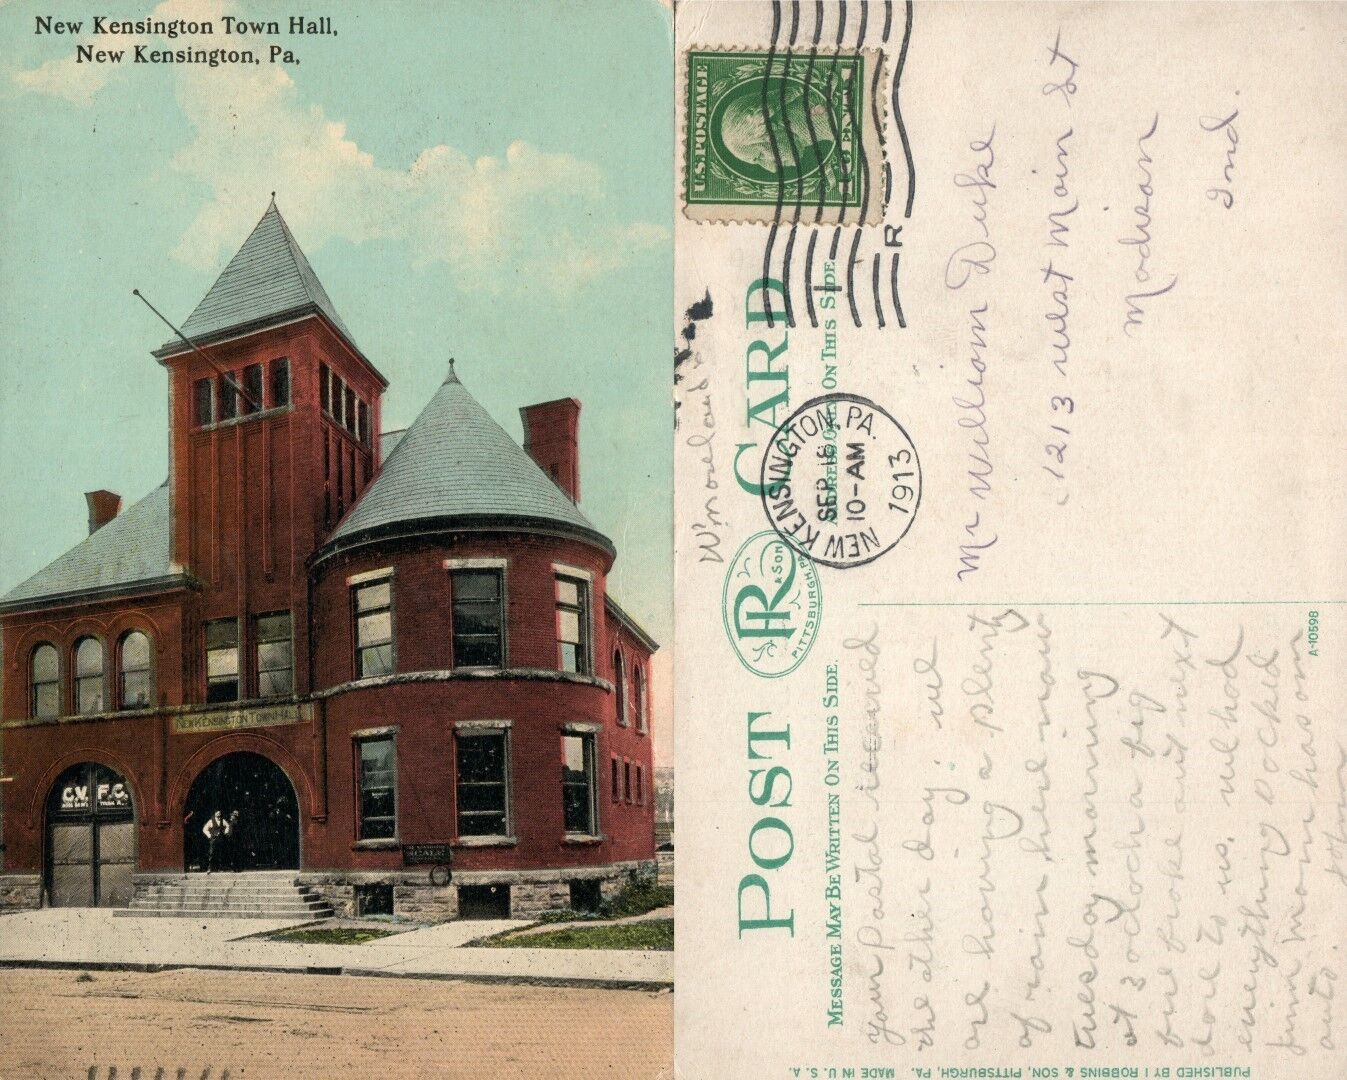 New Kensington Town Hall,
New Kensington, Pa,
NEW KENSINGTON TOWN HALL
C.V. F.C.
U.S. POSTAGE
R
NEW KENSINGTON, PA.
SEP 18
10-AM
1913
POST CARD
ADDRESS ONLY ON THIS SIDE
MESSAGE MAY BE WRITTEN ON THIS SIDE.
IR & SON
PITTSBURGH, PA.
Mr William Duke
1213 west Main St
Madison
Ind.
your Postal received
the other day. we
are having a plenty
of rain here now
tuesday morning
at 3 oclock a big
fire broke out next
door to us. we had
everything packed
Jim man has an
auto. John
A-10598
PUBLISHED BY I ROBBINS & SON, PITTSBURGH, PA. MADE IN U. S. A.